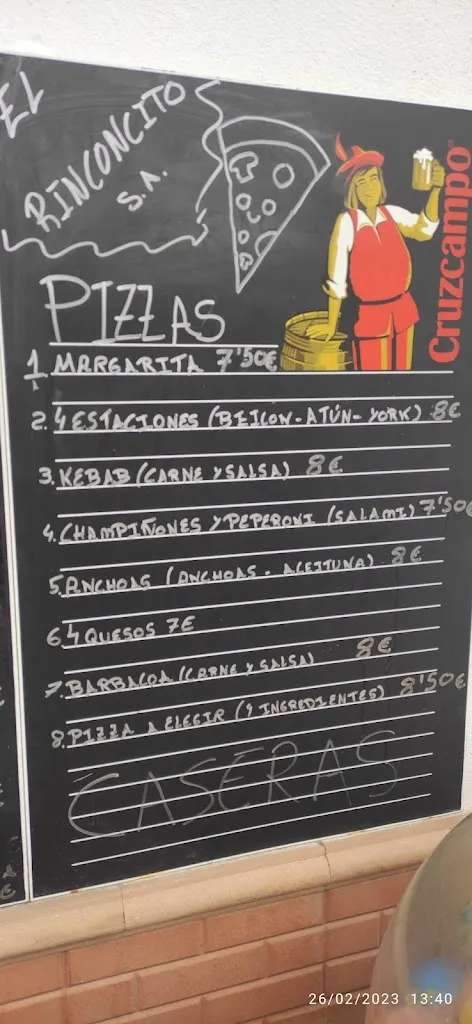 EL
RINCONCITO
S.A.
Cruzcampo
PIZZAS
1 MARGARITA 7'50€
2. 4 ESTACIONES (BEICON-ATÚN-YORK) 8€
3. KEBAB (CARNE Y SALSA) 8€
4. CHAMPIÑONES Y PEPERONI (SALAMI) 7'50€
5. ANCHOAS (ANCHOAS - ACEITUNA) 8€
6 4 QUESOS 7€
7. BARBACOA (CARNE Y SALSA) 8€
8. PIZZA A ELEGIR (4 INGREDIENTES) 8'50€
CASERAS
26/02/2023 13:40